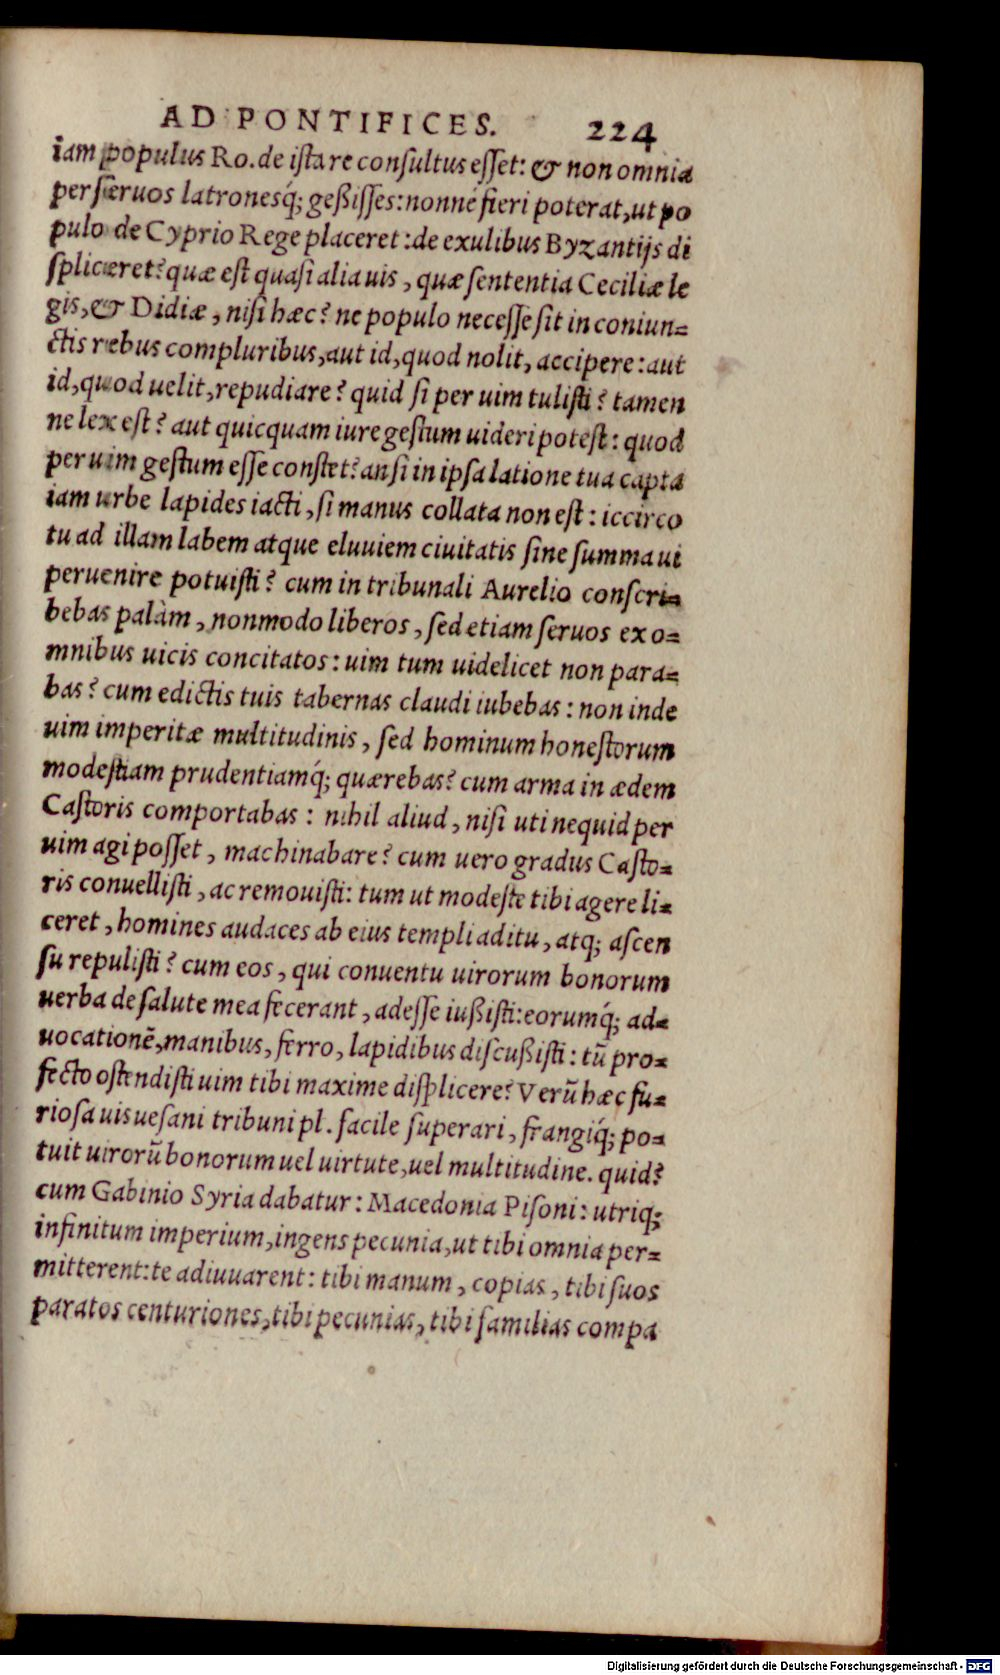 AD PONTIFICES. 224
iam populus Ro. de ista re consultus esset: & non omnia
per seruos latronesq́; geßisses: nonne fieri poterat, ut po
pulo de Cyprio Rege placeret: de exulibus Byzantijs di
spliceret? quæ est quasi alia uis, quæ sententia Ceciliæ le
gis, & Didiæ, nisi hæc? ne populo necesse sit in coniun=
ctis rebus compluribus, aut id, quod nolit, accipere: aut
id, quod uelit, repudiare? quid si per uim tulisti? tamen
ne lex est? aut quicquam iure gestum uideri potest: quod
per uim gestum esse constet? an si in ipsa latione tua capta
iam urbe lapides iacti, si manus collata non est: iccirco
tu ad illam labem atque eluuiem ciuitatis sine summa ui
peruenire potuisti? cum in tribunali Aurelio conscri=
bebas palàm, nonmodo liberos, sed etiam seruos ex o=
mnibus uicis concitatos: uim tum uidelicet non para=
bas? cum edictis tuis tabernas claudi iubebas: non inde
uim imperitæ multitudinis, sed hominum honestorum
modestiam prudentiamq́; quærebas? cum arma in ædem
Castoris comportabas: nihil aliud, nisi uti nequid per
uim agi posset, machinabare? cum uero gradus Casto=
ris conuellisti, ac remouisti: tum ut modeste tibi agere li=
ceret, homines audaces ab eius templi aditu, atq; ascen
su repulisti? cum eos, qui conuentu uirorum bonorum
uerba de salute mea fecerant, adesse iußisti: eorumq́; ad=
uocationē, manibus, ferro, lapidibus discußisti: tū pro=
fecto ostendisti uim tibi maxime displicere? Verū hæc fu=
riosa uis uesani tribuni pl. facile superari, frangiq́; po=
tuit uirorū bonorum uel uirtute, uel multitudine. quid?
cum Gabinio Syria dabatur: Macedonia Pisoni: utriq;
infinitum imperium, ingens pecunia, ut tibi omnia per=
mitterent: te adiuuarent: tibi manum, copias, tibi suos
paratos centuriones, tibi pecunias, tibi familias compa
Digitalisierung gefördert durch die Deutsche Forschungsgemeinschaft - DFG